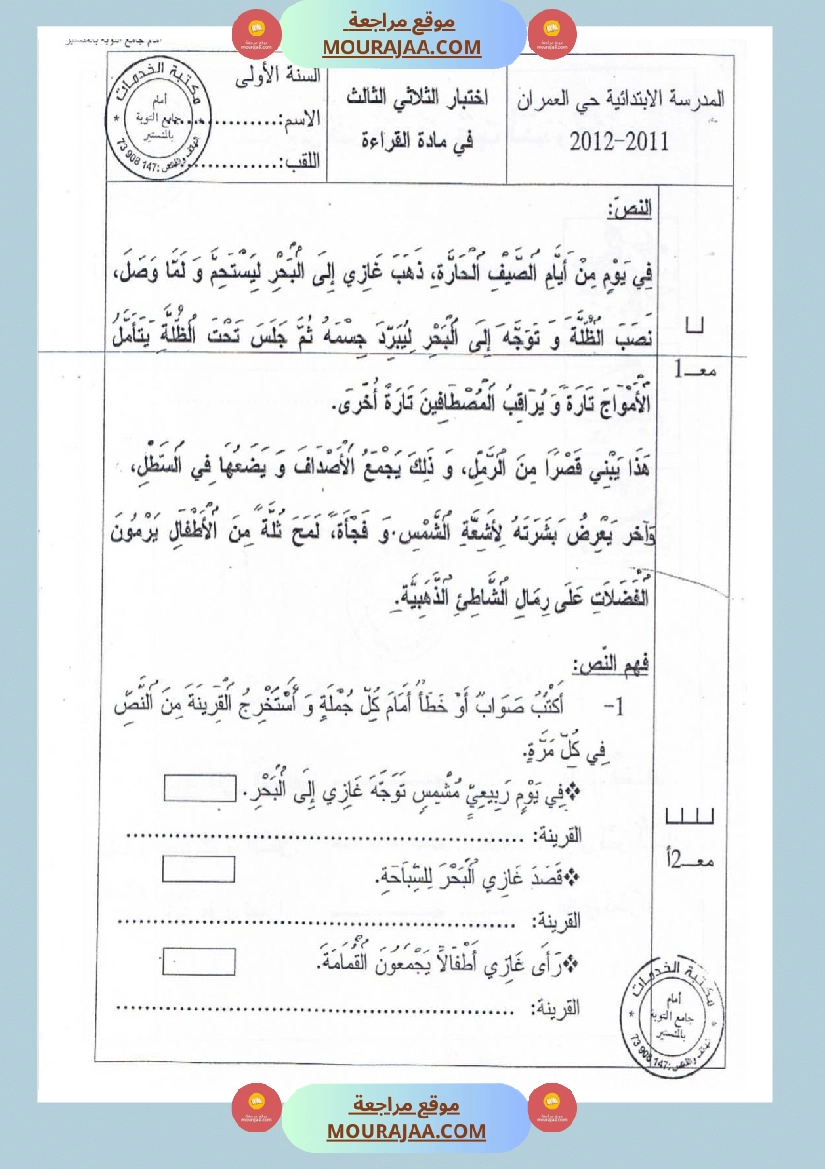 موقع مراجعة
MOURAJAA.COM
المدرسة الابتدائية حي العمران
2012-2011
اختبار الثلاثي الثالث
في مادة القراءة
السنة الأولى
الاسم:...............
اللقب:...............
مكتبة الخدمات
أمام
جامع التوبة
بالمنستير
73 908 147
النصّ:
فِي يَوْمٍ مِنْ أَيَّامِ الصَّيْفِ الْحَارَّةِ، ذَهَبَ غَازِي إِلَى الْبَحْرِ لِيَسْتَحِمَّ وَ لَمَّا وَصَلَ،
نَصَبَ الْظُلَّةَ وَ تَوَجَّهَ إِلَى الْبَحْرِ لِيُبَرِّدَ جِسْمَهُ ثُمَّ جَلَسَ تَحْتَ الْظُلَّةِ يَتَأَمَّلُ
الْأَمْوَاجَ تَارَةً وَ يُرَاقِبُ الْمُصْطَافِينَ تَارَةً أُخْرَى.
هَذَا يَبْنِي قَصْرًا مِنَ الرَّمْلِ، وَ ذَلِكَ يَجْمَعُ الْأَصْدَافَ وَ يَضَعُهَا فِي السَّطْلِ،
وَآخر يَعْرِضُ بَشَرَتَهُ لِأَشِعَّةِ الشَّمْسِ. وَ فَجْأَةً، لَمَحَ ثُلَّةً مِنَ الْأَطْفَالِ يَرْمُونَ
الْفَضَلَاتِ عَلَى رِمَالِ الشَّاطِئِ الذَّهَبِيَّةِ.
معـ1
فهم النّص:
1- أَكْتُبُ صَوَابٌ أَوْ خَطَأٌ أَمَامَ كُلِّ جُمْلَةٍ وَ أَسْتَخْرِجُ الْقَرِينَةَ مِنَ النَّصِّ
فِي كُلِّ مَرَّةٍ.
❖فِي يَوْمٍ رَبِيعِيٍّ مُشْمِسٍ تَوَجَّهَ غَازِي إِلَى الْبَحْرِ.
القرينة: ......................................................
❖قَصَدَ غَازِي الْبَحْرَ لِلسِّبَاحَةِ.
القرينة: ......................................................
❖رَأَى غَازِي أَطْفَالًا يَجْمَعُونَ الْقُمَامَةَ.
القرينة: ......................................................
معـ2أ
مكتبة الخدمات
أمام
جامع التوبة
بالمنستير
73 908 147
موقع مراجعة
MOURAJAA.COM